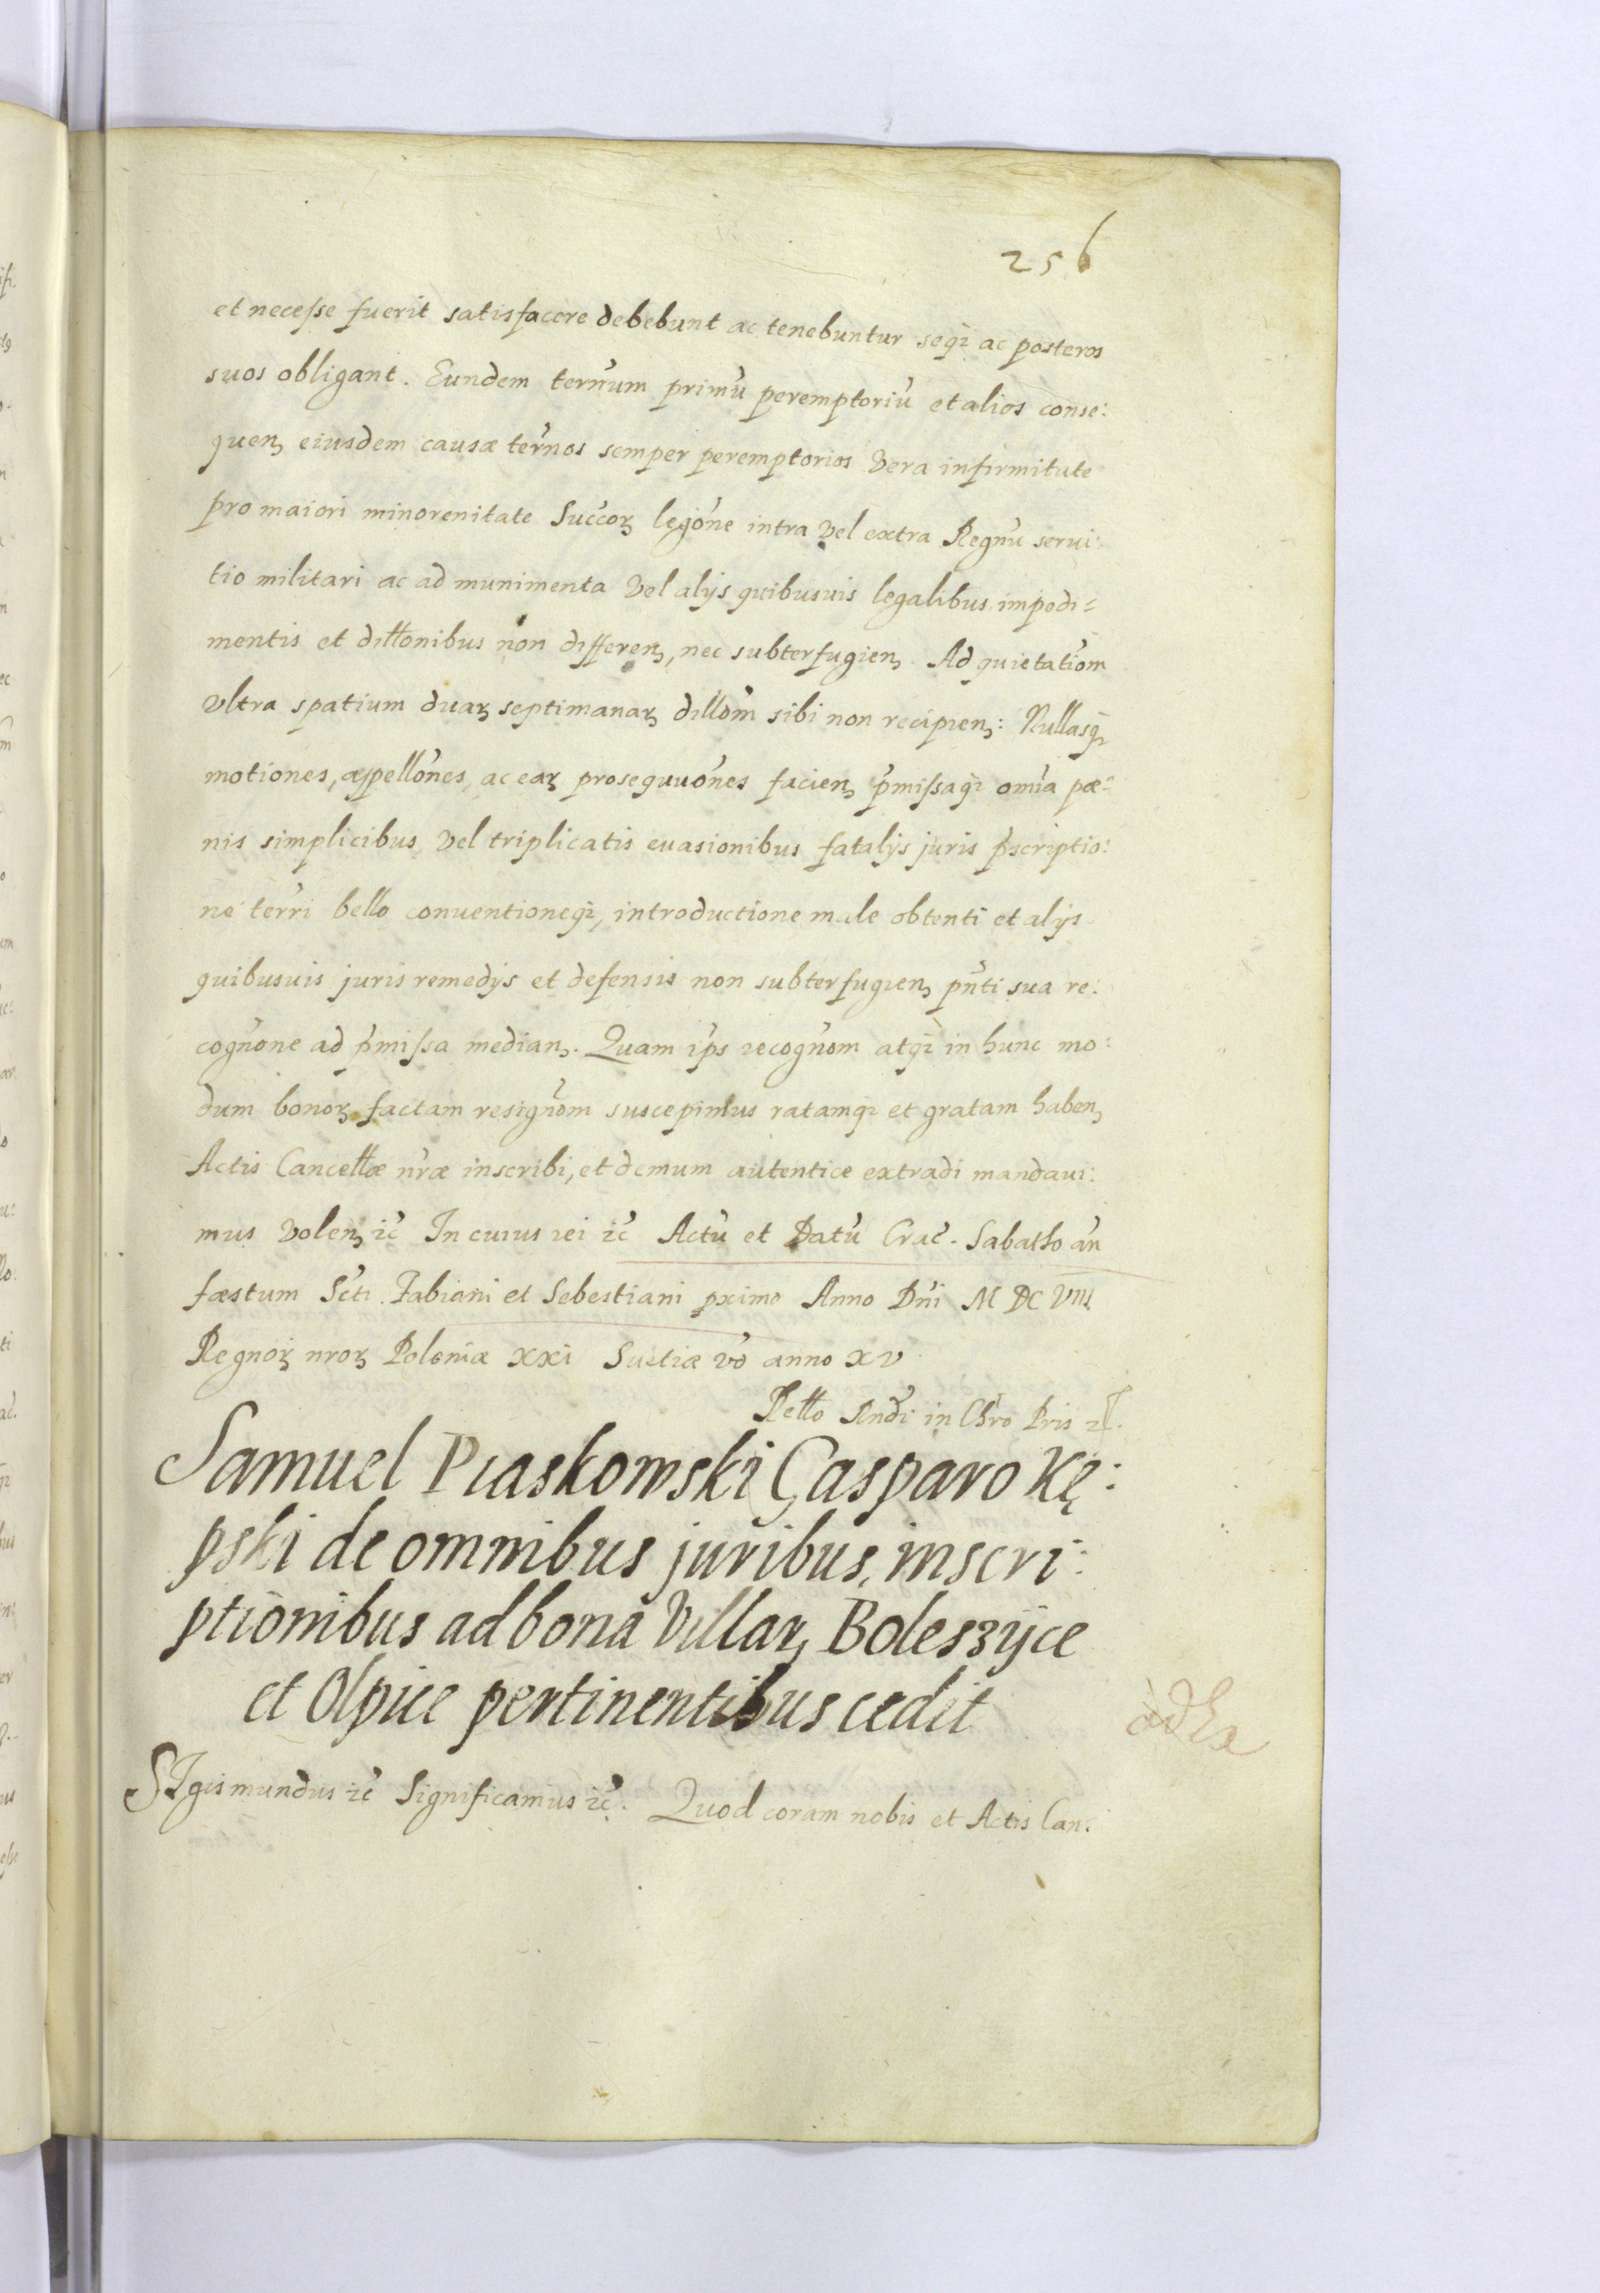 256
et necesse fuerit satisfacere debebunt ac tenebuntur seqz ac posteros
suos obligant. Eundem termum primũ peremptoriũ et alios conse:
quenꝫ eiusdem causæ termos semper peremptorios vera infirmitate
pro maiori minorenitate Succorꝝ legone intra vel extra Regnũ servi:
tio militari ac ad munimenta vel alÿs quibusuis legalibus impedi=
mentis et dillonibus non differenꝫ, nec subterfugienꝫ. Ad quietatiom
vltra spatium duarꝝ septimanarꝝ dillom sibi non recipienꝫ: Nullasqz
motiones, appellones, ac earꝝ prosequuones facienꝫ pmissaqz omia pœ=
nis simplicibus vel triplicatis euasionibus fatalÿs juris pscriptio:
ne terri bello conuentioneqz, introductione male obtenti et alÿs
quibusuis juris remedÿs et defensis non subterfugienꝫ pnti sua re:
cognone ad pmissa medianꝫ. Quam ips recognom atqz in hunc mo:
dum bonorꝝ factam resignom suscepimus ratamqz et gratam habenꝫ
Actis Cancellæ nræ inscribi, et demum autentice extradi mandaui:
mus volenꝫ zc̃ In cuius rei zc̃ Actũ et Datũ Crac̃. Sabatho añ
fæstum Scti Fabiani et Sebestiani pximo Anno Dni M DC VIII
Regnorꝝ nrorꝝ Poloniæ XXI Suetiæ vo anno XV
Rello Rndi in Chro Pris
Samuel Piaskowski Gasparo Kę:
pski de omnibus juribus, inscri:
ptionibus ad bona Villarꝝ Boleszÿce
et Olpice pertinentibus cedit
SIgismundus zc̃ Significamus zc̃. Quod coram nobis et Actis Can: